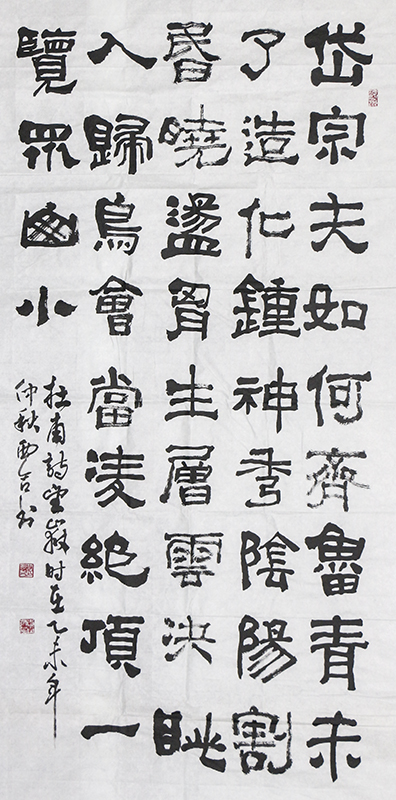 岱宗夫如何齊魯青未
了造化鍾神秀陰陽割
昏曉盪胷生層雲決眦
入歸鳥會當凌絕頂一
覽眾山小
杜甫詩望嶽时在乙未年
仲秋